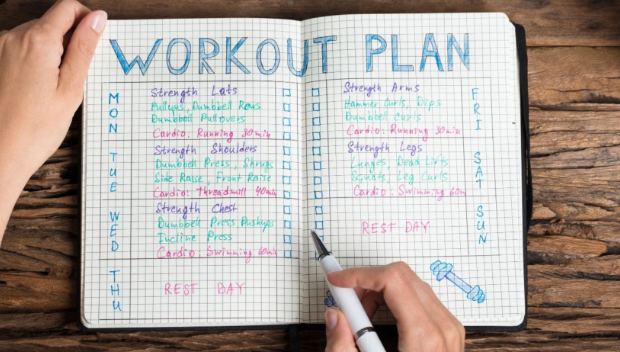 WORKOUT PLAN
MON
Strength Lats
Pullups, Dumbbell Rows
Dumbbell Pullovers
Cardio: Running 30 min
TUE
Strength Shoulders
Dumbbell Press, Shrugs
Side Raise, Front Raise
Cardio: Threadmill 40min
WED
Strength Chest
Dumbbell Press Pushups
Incline Press
Cardio: Swimming 60min
THU
REST DAY
Strength Arms
Hammer Curls, Dips
Dumbbell Curls
Cardio: Running 30 min
FRI
Strength Legs
Lunges, Dead Lifts
Squats, Leg Curls
Cardio: Swimming 60m
SAT
REST DAY
SUN